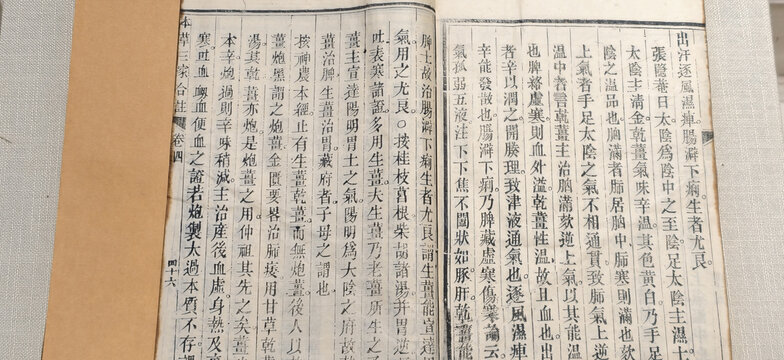 出汗逐風濕痺腸澼下痢生者尤良
張隱菴曰太陰爲陰中之至陰足太陰主濕土
太陰主清金乾薑氣味辛溫其色黃白乃手足
陰之溫品也胸滿者肺居胸中肺寒則滿也欬
上氣者手足太陰之氣不相通貫致肺氣上逆
溫中者言乾薑主治胸滿欬逆上氣以其能溫
也脾絡虛寒則血外溢乾薑性溫故止血也出
者辛以潤之開腠理致津液通氣也逐風濕痺
辛能發散也腸澼下痢乃脾臟虛寒傷寒論云
氣孤弱五液注下下焦不闔狀如豚肝乾薑能
脾土故治腸澼下痢生者尤良謂生薑能宣達
氣用之尤良○按桂枝葛根柴胡諸湯并胃逆
吐表寒諸證多用生薑夫生薑乃老薑所生之
薑主宣達陽明胃土之氣陽明爲太陰之府故
薑治脾生薑治胃藏府者子母之謂也
按神農本經止有生薑乾薑而無炮薑後人以
薑炮黑謂之炮薑金匱要畧治肺痿用甘草乾
湯其乾薑亦炮是炮薑之用仲祖其先之矣薑
本辛炮過則辛味稍減主治產後血虛身熱及
寒吐血衄血便血之證若炮製太過本質不存
本草三家合註 卷四 四十六